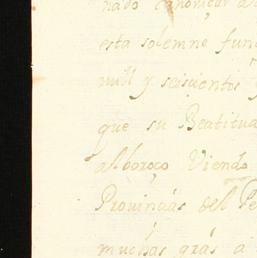 nado canonizar a
esta solemne fun
mill y seiscientos
que su Beatitu
alboroço Viendo
Provincias del Pe
muchas gras a